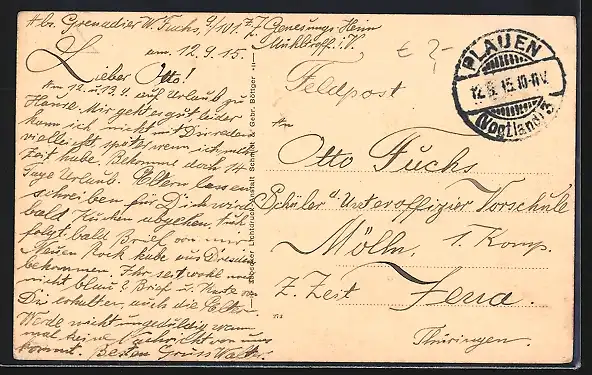 Abs. Grenadier W. Fuchs, 9/101. z. Z. Genesungs Heim
Mühltroff i. V.
am. 12.9.15.
Lieber Otto!
Am 12. u 13.9. auf Urlaub zu
Hause. Mir geht es gut leider
kann ich nicht mit Dir reden
vielleicht später wenn ich mehr
Zeit habe. Bekomme doch 14
Tage Urlaub. Eltern lassen
schreiben für Dich wird
bald Kuchen abgehen, auch
folgt bald Brief von mir
Neuen Rock habe aus Dresden
bekommen. Ihr seit wohl
nicht blau? Brief u. Karte von
Dir erhalten, auch die Eltern
Werde nicht ungeduldig wenn
mal keine Nachricht von uns
kommt. Besten Gruss Walt.
Dresdner Lichtdruckanstalt Schmidt & Gebr. Böttger
€ ?-
PLAUEN
12.9.15.10-11V.
(Vogtland) 3
Feldpost
An
Otto Fuchs
Schüler d. Unteroffizier Vorschule
Mölln, 1. Komp.
z. Zeit Jena.
Thüringen.